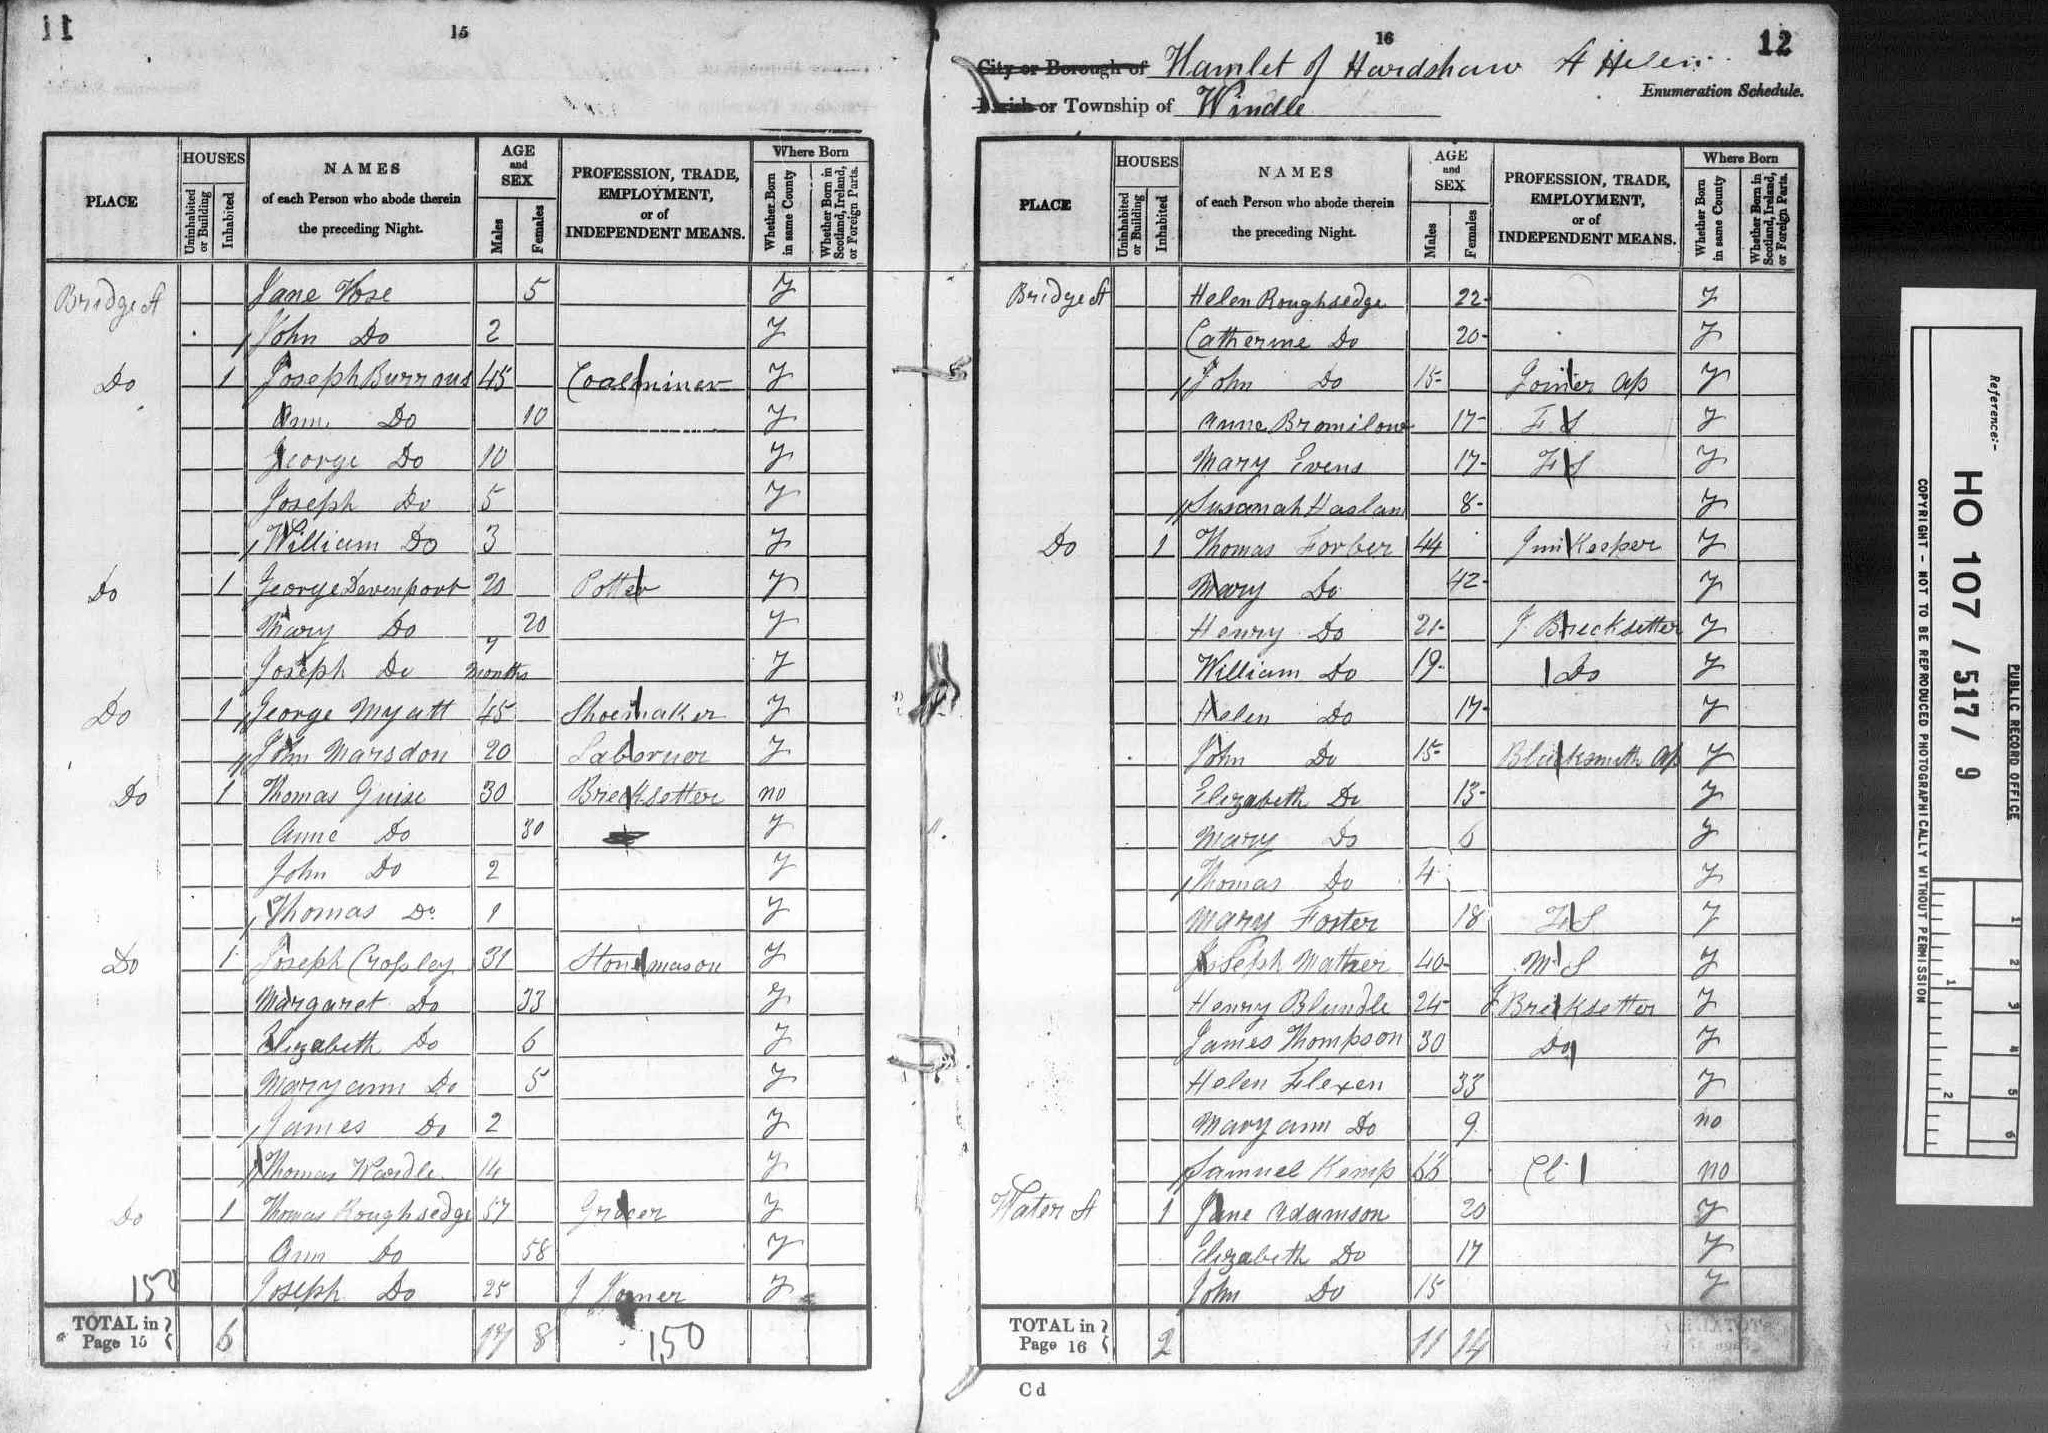 11
15
PLACE
HOUSES
Uninhabited or Building
Inhabited
NAMES
of each Person who abode therein
the preceding Night.
AGE
and
SEX
Males
Females
PROFESSION, TRADE,
EMPLOYMENT,
or of
INDEPENDENT MEANS.
Where Born
Whether Born in same County
Whether Born in Scotland, Ireland, or Foreign Parts.
Bridge St Jane Vose 5 Y
John Do 2 Y
Do 1 Joseph Burrows 45 Coalminer Y
Ann Do 10 Y
George Do 10 Y
Joseph Do 5 Y
William Do 3 Y
Do 1 George Davenport 20 Potter Y
Mary Do 20 Y
Joseph Do 7 months Y
Do 1 George Myatt 45 Shoemaker Y
John Marsdon 20 Laboruer Y
Do 1 Thomas Guise 30 Brecksetter no
Anne Do 30 Y
John Do 2 Y
Thomas Do 1 Y
Do 1 Joseph Cropley 31 Stonemason Y
Margaret Do 33 Y
Elizabeth Do 6 Y
Maryann Do 5 Y
James Do 2 Y
Thomas Wardle 14 Y
Do 1 Thomas Roughsedge 57 Grocer Y
Ann Do 58 Y
150 Joseph Do 25 J Joiner Y
TOTAL in Page 15 6 17 8 150
16
12
City or Borough of Hamlet of Hardshaw St Helens
Enumeration Schedule.
Parish or Township of Windle
PLACE
HOUSES
Uninhabited or Building
Inhabited
NAMES
of each Person who abode therein
the preceding Night.
AGE
and
SEX
Males
Females
PROFESSION, TRADE,
EMPLOYMENT,
or of
INDEPENDENT MEANS.
Where Born
Whether Born in same County
Whether Born in Scotland, Ireland, or Foreign Parts.
Bridge St Helen Roughsedge 22 Y
Catherine Do 20 Y
John Do 15 Joiner Ap Y
Anne Bromilow 17 F S Y
Mary Evens 17 F S Y
Susanah Haslam 8 Y
Do 1 Thomas Forber 44 Inn Keeper Y
Mary Do 42 Y
Henry Do 21 J Brecksetter Y
William Do 19 Do Y
Helen Do 17 Y
John Do 15 Blacksmith Ap Y
Elizabeth Do 13 Y
Mary Do 6 Y
Thomas Do 4 Y
Mary Forter 18 F S Y
Joseph Mather 40 M S Y
Henry Blundle 24 J Brecksetter Y
James Thompson 30 Do Y
Helen Flexen 33 Y
Maryann Do 9 no
Samuel Kemp no
Water St 1 Jane Adamson 20 Y
Elizabeth Do 17 Y
John Do 15 Y
TOTAL in Page 16 2 11 14
Cd
Reference:-
HO 107 / 517 / 9
PUBLIC RECORD OFFICE
COPYRIGHT - NOT TO BE REPRODUCED PHOTOGRAPHICALLY WITHOUT PERMISSION
1 2 3 4 5 6
1 2